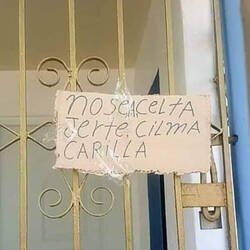 NOSEACELTA
JERTE, CILMA
CARILLA